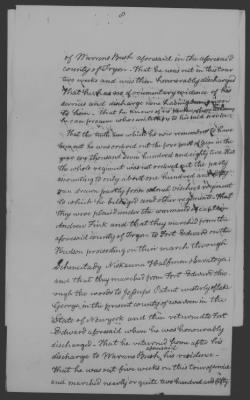 8
of Warrens Bush aforesaid in the aforesaid
county of Tryon. That he was out in this tour
two weeks and was then honourably discharged
That he has no documentary evidence of his
service and discharge now
to him. That he knows of no
he can procure who can testify to his said service.
That the tenth tour which he now remembers to have
been out he was ordered out the fore part of June in the
year one thousand seven hundred and eighty two that
the whole regiment was not ordered out the party
amounting to only about one hundred and fifty
men drawn partly from colonel vischers regiment
to which he belonged and other regiments. That
they were placed under the command of captain
Andrew Fink and that they marched from the
aforesaid county of Tryon to Fort Edward on the
Hudson proceeding on their march through
Schenectady Niskauna Halfmoon Saratoga.
and that they marched from Fort Edward thro
ugh the woods to Jessups Patent westerly of Lake
George, in the present county of Warren in the
State of New york and then returned to Fort
Edward aforesaid where he was honourably
discharged. That he returned from after his
discharge to Warrens Bush, aforesaid his residence.
That he was out five weeks on this tour of service
and marched nearly or quite two hundred and fifty